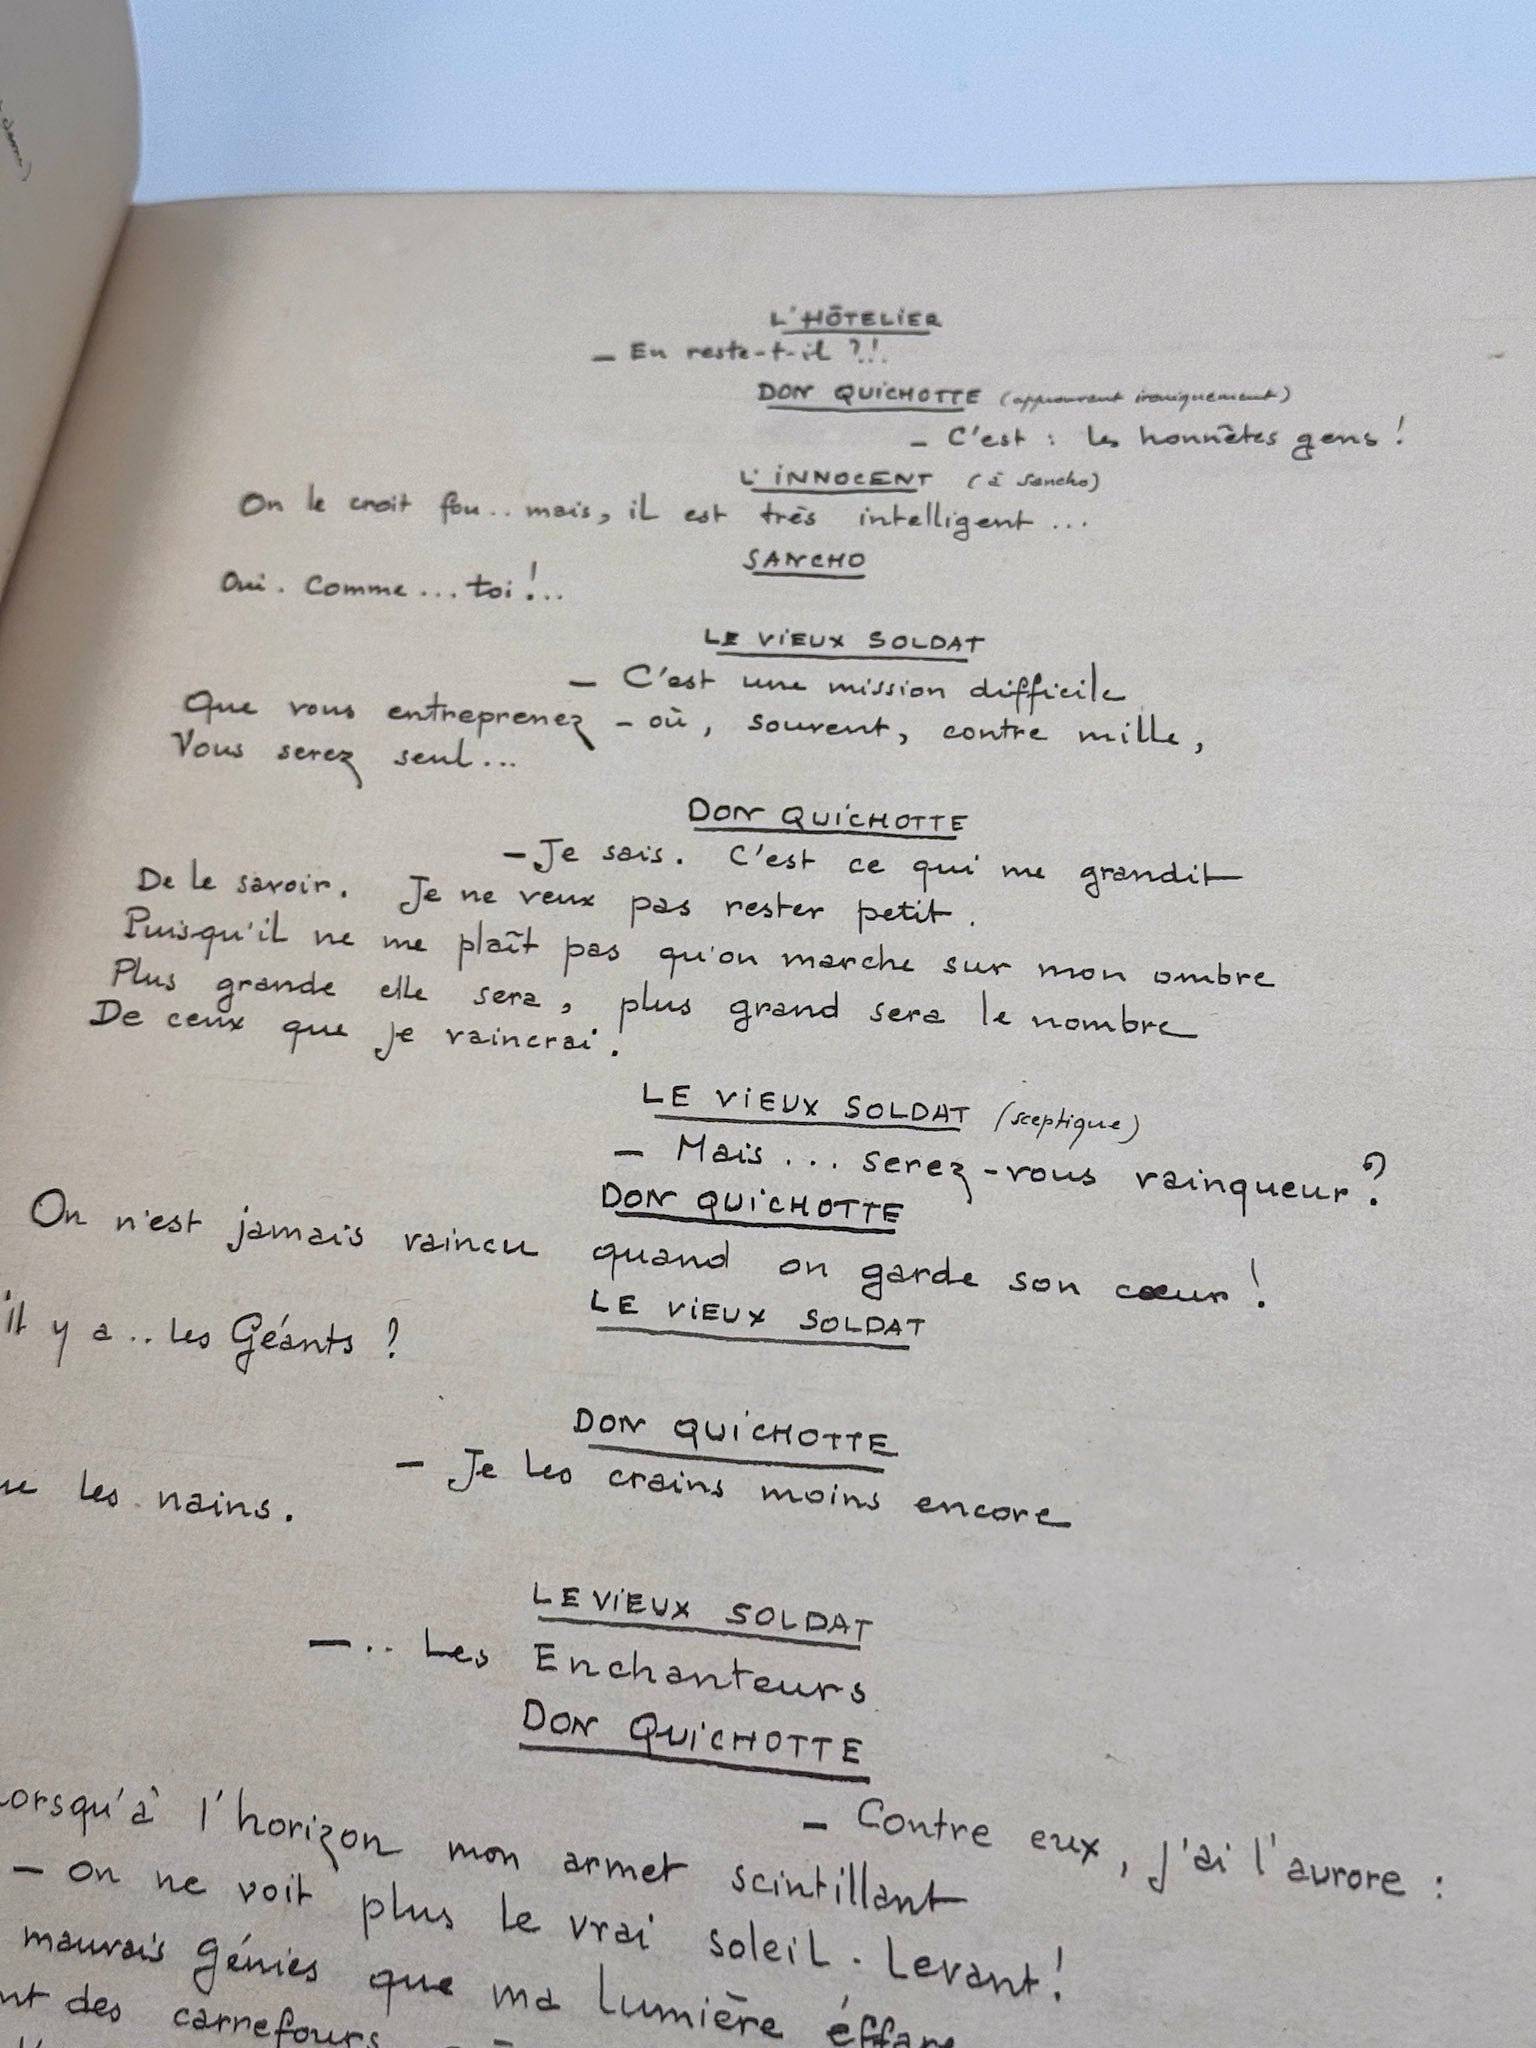 L'HÔTELIER
— En reste-t-il ?!.
DON QUICHOTTE (approuvant ironiquement)
— C'est : les honnêtes gens !
L'INNOCENT (à Sancho)
On le croit fou.. mais, il est très intelligent ...
SANCHO
Oui. Comme ... toi !..
LE VIEUX SOLDAT
— C'est une mission difficile
Que vous entreprenez — où, souvent, contre mille,
Vous serez seul...
DON QUICHOTTE
— Je sais. C'est ce qui me grandit
De le savoir. Je ne veux pas rester petit.
Puisqu'il ne me plaît pas qu'on marche sur mon ombre
Plus grande elle sera, plus grand sera le nombre
De ceux que je vaincrai.
LE VIEUX SOLDAT (sceptique)
— Mais ... serez-vous vainqueur ?
DON QUICHOTTE
On n'est jamais vaincu quand on garde son cœur !
LE VIEUX SOLDAT
il y a .. les Géants ?
DON QUICHOTTE
— Je les crains moins encore
les nains.
LE VIEUX SOLDAT
— .. Les Enchanteurs
DON QUICHOTTE
— Contre eux, j'ai l'aurore :
Lorsqu'à l'horizon mon armet scintillant
— On ne voit plus le vrai soleil. Levant !
mauvais génies que ma lumière effare
des carrefours